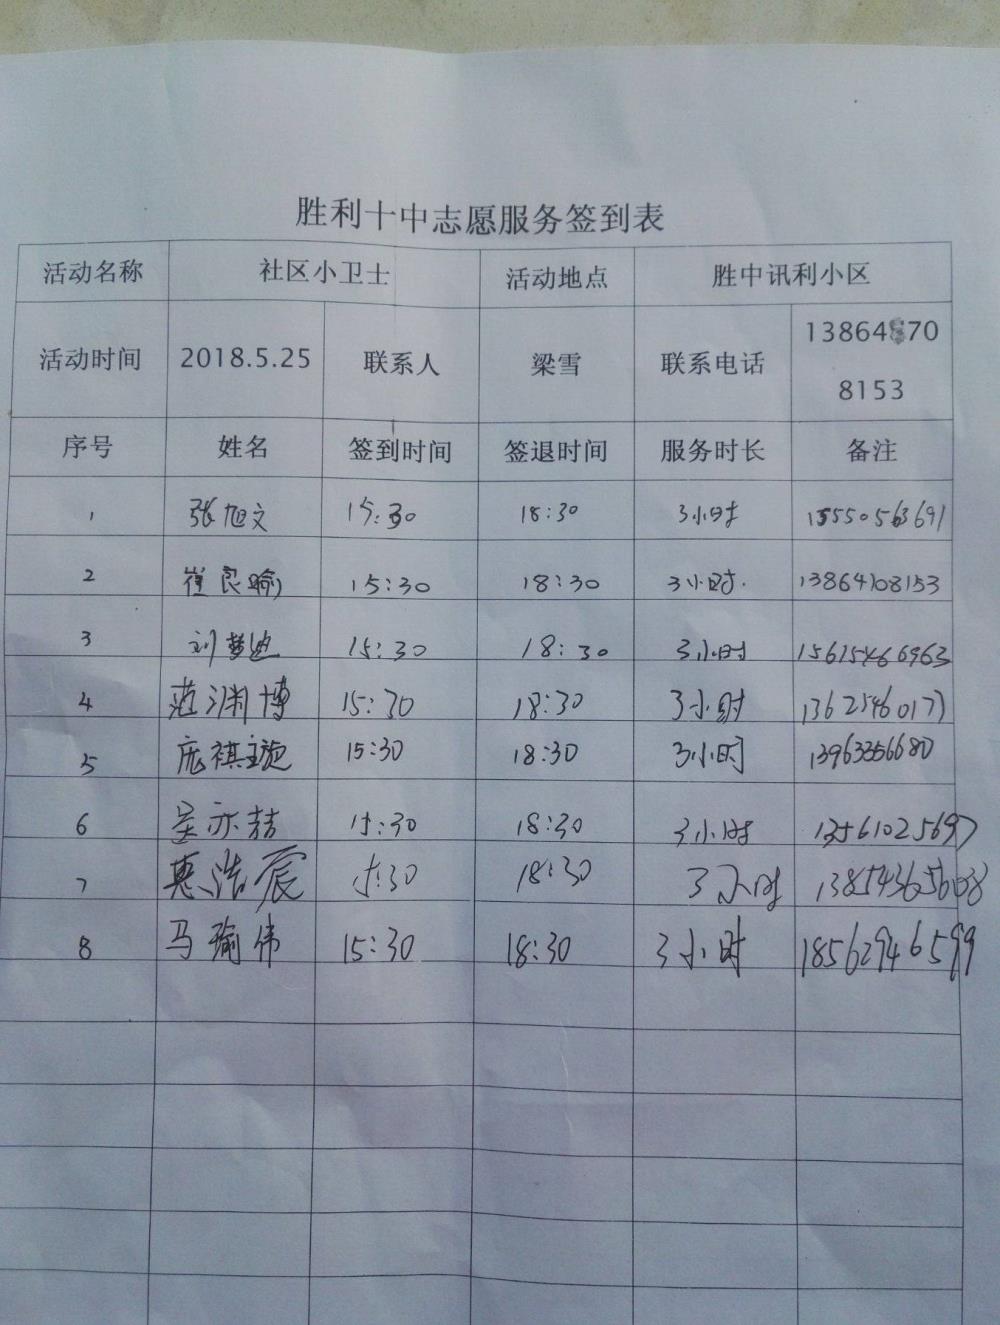 胜利十中志愿服务签到表
活动名称 社区小卫士 活动地点 胜中讯利小区
活动时间 2018.5.25 联系人 梁雪 联系电话 13864 70
8153
序号 姓名 签到时间 签退时间 服务时长 备注
1 张旭文 15:30 18:30 3小时 15550563691
2 崔良瑜 15:30 18:30 3小时. 13864708153
3 刘梦迪 15:30 18:30 3小时 15615466963
4 范渊博 15:30 18:30 3小时 13625460177
5 庞祺璇 15:30 18:30 3小时 13963356680
6 吴亦喆 15:30 18:30 3小时 13561025697
7 惠浩宸 15:30 18:30 3小时
8 马瑜伟 15:30 18:30 3小时 18562946599